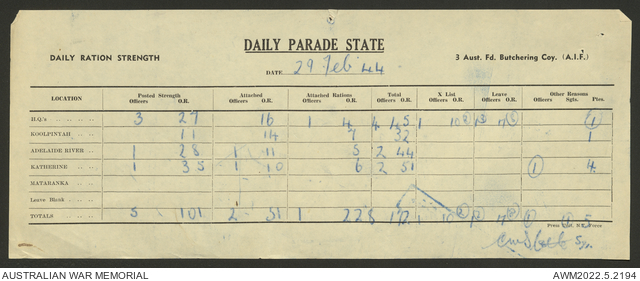 DAILY PARADE STATE
DAILY RATION STRENGTH
3 Aust. Fd. Butchering Coy. (A.I.F.)
DATE 29 Feb 44
LOCATION Posted Strength Attached Attached Rations Total X List Leave Other Reasons
Officers O.R. Officers O.R. Officers O.R. Officers O.R. Officers O.R. Officers O.R. Officers Sgts. Ptes.
H.Q's 3 27 16 1 4 4 45 1 10 1
KOOLPINYAH 11 14 7 32 1
ADELAIDE RIVER 1 28 1 11 5 2 44
KATHERINE 1 35 1 10 6 2 51 1 4
MATARANKA
Leave Blank
TOTALS 5 101 2 51 1 22 8 172 1 10 5
AUSTRALIAN WAR MEMORIAL
AWM2022.5.2194